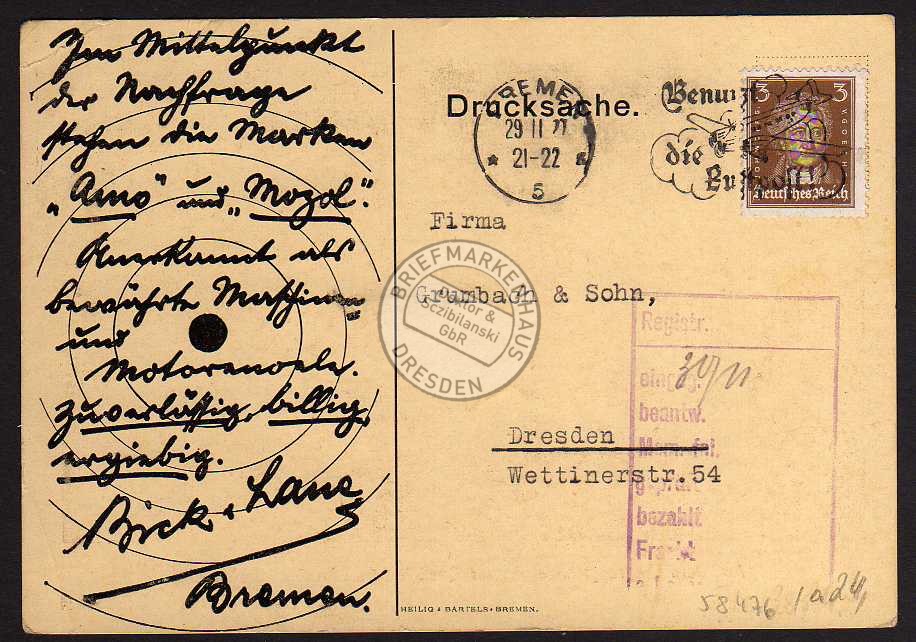 Im Mittelpunkt
der Nachfrage
stehen die Marken
„Amo" und „Mozol".
Anerkannt als
bewährte Maschinen
und
Motorenoele.
Zuverlässig, billig,
ergiebig.
Bremen.
Drucksache.
BREMEN
29 11 27
21-22
5
Benutzt
die
Luftpost
3 3
Deutsches Reich
Firma
Grumbach & Sohn,
Dresden
Wettinerstr. 54
BRIEFMARKENHAUS
Sczibilanski
GbR
DRESDEN
Registr.
eingeg.
beantw.
geprüft
bezahlt
HEILIG & BARTELS • BREMEN.
58476